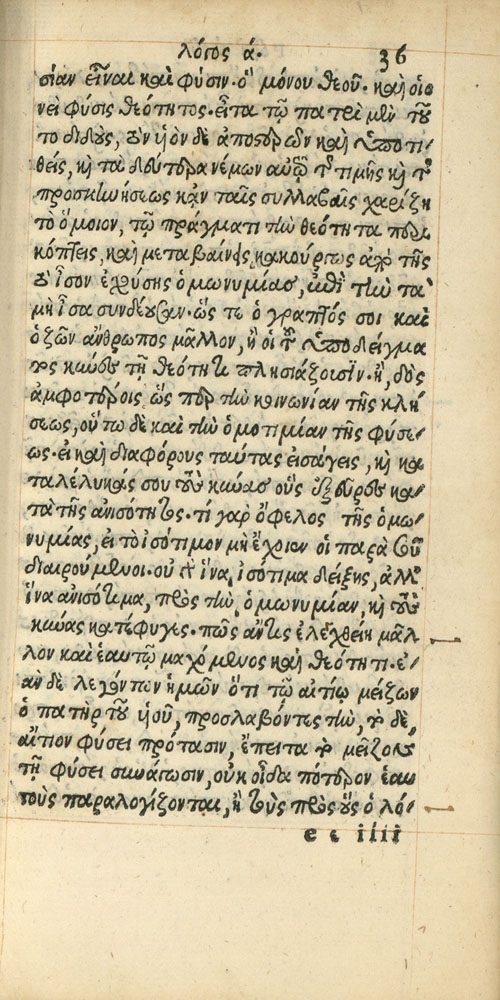 λόγος ά. 36
σίαν εἶναι καὶ φύσιν. ὃ μόνου θεοῦ. καὶ οἱο
νεὶ φύσις θεότητος. εἶτα τῷ πατρὶ μὲν τοῦ
το διδοὺς, τὸν υἱὸν δὲ ἀποστερῶν καὶ ὑποτι-
θείς, καὶ τὰ δεύτερα νέμων αὐτῷ τῆς τιμῆς καὶ τῆς
προσκυνήσεως κἂν ταῖς συλλαβαῖς χαρίζῃ
τὸ ὅμοιον, τῷ πράγματι τὴν θεότητα περι
κόπτεις, καὶ μεταβαίνεις κακούργως ἀπὸ τῆς
τὸ ἶσον ἐχούσης ὁμωνυμίας, ἐπὶ τὴν τὰ
μὴ ἶσα συνδέουσαν. ὥς τε ὁ γραπτός σοι καὶ
ὁ ζῶν ἄνθρωπος μᾶλλον, ἢ οἱ τοῦ ὑποδείγμα
τος κύνες τῇ θεότητι πλησιάζουσιν. ἢ, δὸς
ἀμφοτέροις ὥς περ τὴν κοινωνίαν τῆς κλή
σεως, οὕτω δὲ καὶ τὴν ὁμοτιμίαν τῆς φύσε-
ως. εἰ καὶ διαφόρους ταύτας εἰσάγεις, καὶ κα
ταλέλυκάς σου τοὺς κύνας οὓς ἐξεῦρες κα-
τὰ τῆς ἀνισότητος. τί γὰρ ὄφελος τῆς ὁμω-
νυμίας, εἰ τὸ ἰσότιμον μὴ ἔχοιεν οἱ παρὰ σοῦ
διαιρούμενοι. οὐ γὰρ ἵνα ἰσότιμα δείξῃς, ἀλλ'
ἵνα ἀνισότιμα, πρὸς τὴν ὁμωνυμίαν, καὶ τοὺς
κύνας κατέφυγες. πῶς ἄν τις ἐλεγχθείη μᾶλ
λον καὶ ἑαυτῷ μαχόμενος καὶ θεότητι. ἐ-
ὰν δὲ λεγόντων ἡμῶν ὅτι τῷ αἰτίῳ μείζων
ὁ πατὴρ τοῦ υἱοῦ, προσλαβόντες τὴν, τὸ δὲ,
αἴτιον φύσει πρότασιν, ἔπειτα τὸ μεῖζον
τῇ φύσει συνάγωσιν, οὐκ οἶδα πότερον ἑαυ
τοὺς παραλογίζονται, ἢ τοὺς πρὸς οὓς ὁ λό-
e e iiii